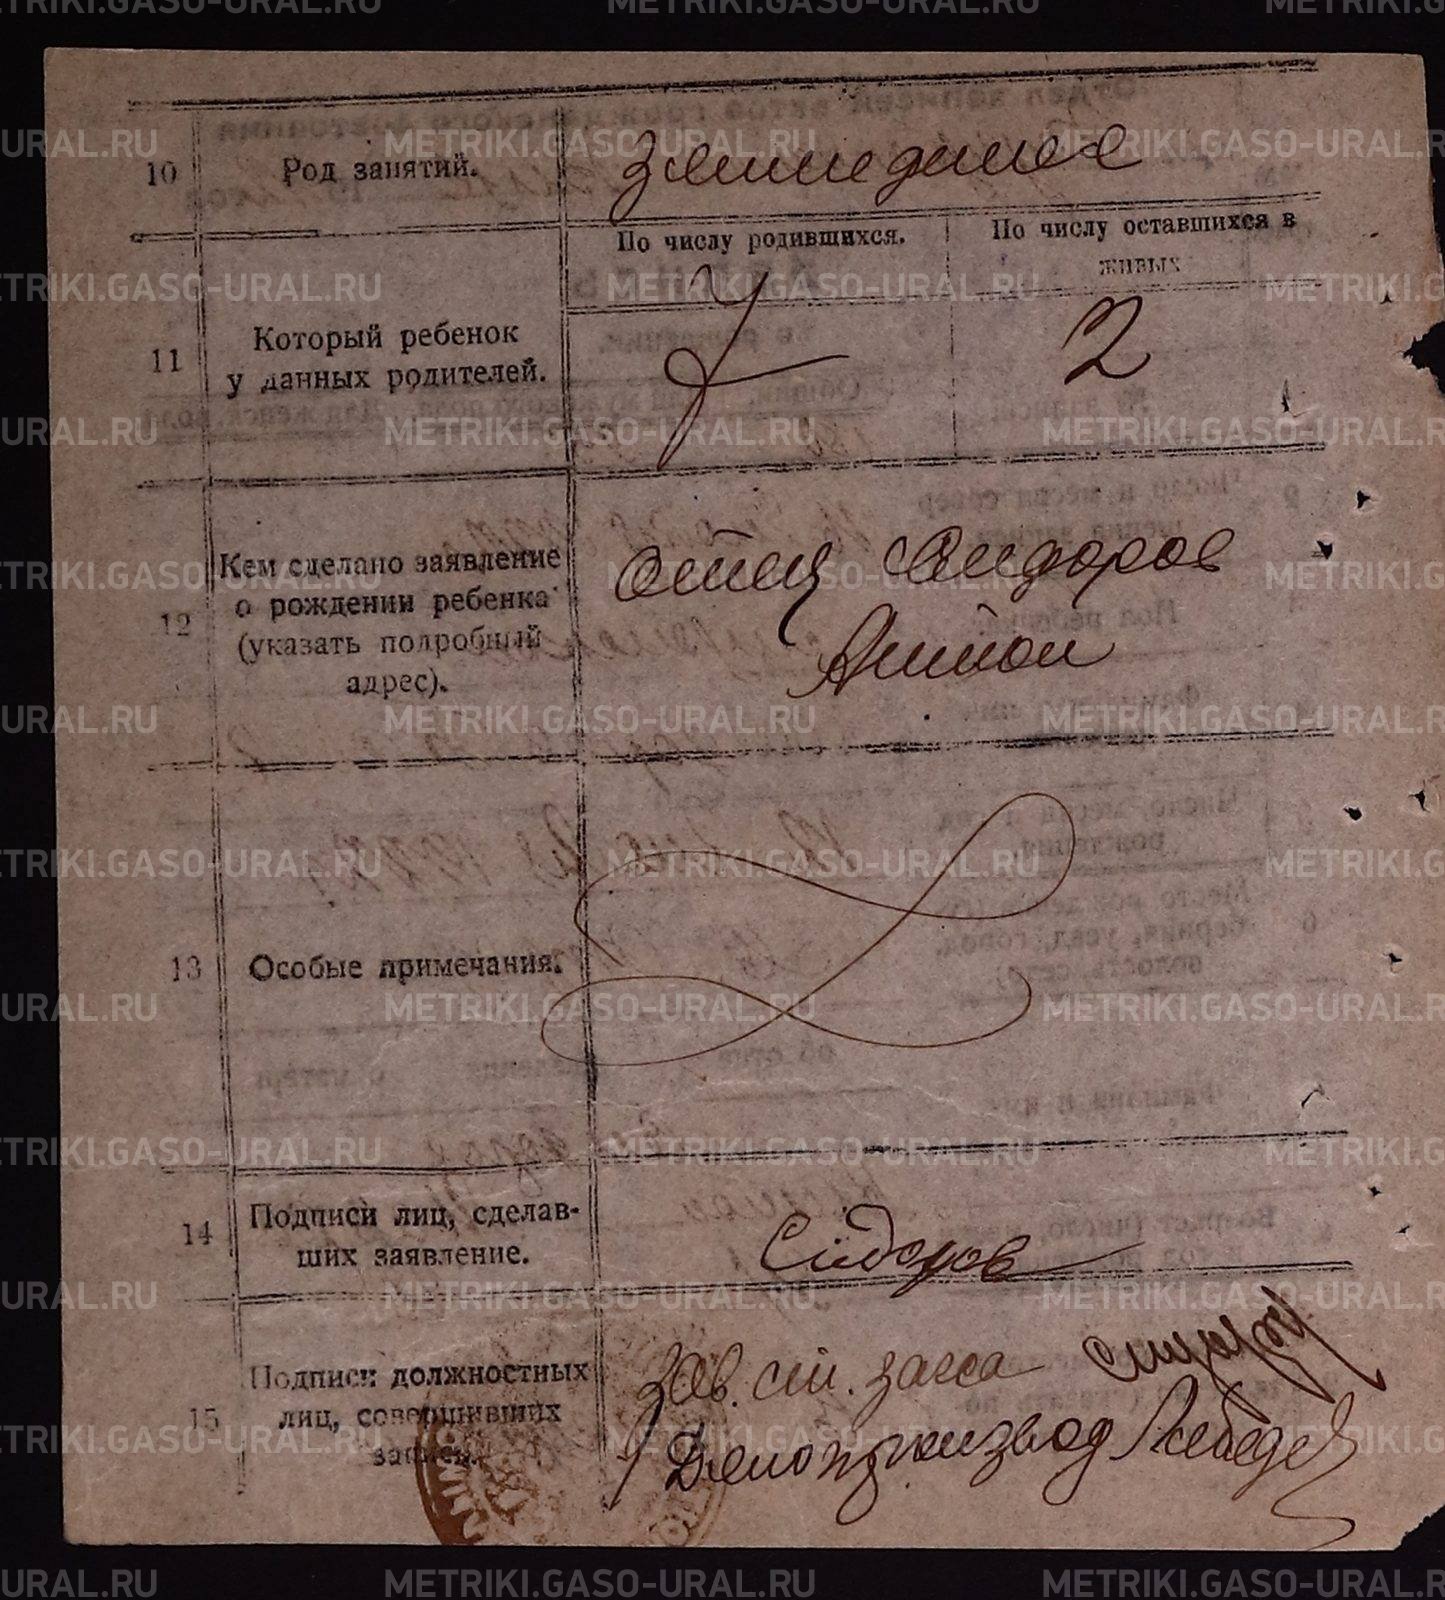 10 Род занятий. Земледелие
По числу родившихся. По числу оставшихся в
живых
11 Который ребенок
у данных родителей. 2
12 Кем сделано заявление
о рождении ребенка
(указать подробный
адрес).
отец Сидоров
Антон
13 Особые примечания.
14 Подписи лиц, сделав-
ших заявление. Сидоров
15 Подписи должностных
лиц, совершивших
записи.
Зав. ст. загса
Делопроизвод Лебедев
METRIKI.GASO-URAL.RU